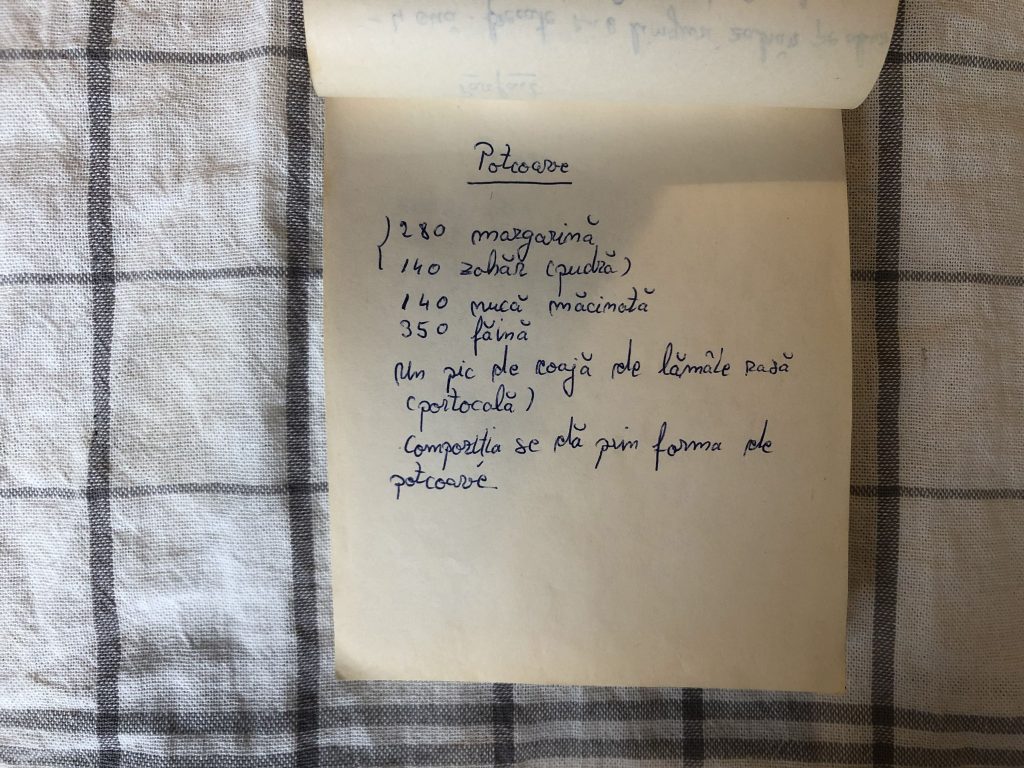 Potcoave
280 margarină
140 zahăr (pudră)
140 nucă măcinată
350 făină
Un pic de coajă de lămâie rasă
(portocală)
Compoziția se dă prin forma de
potcoave